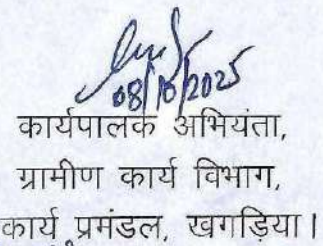 08/10/2025
कार्यपालक अभियंता,
ग्रामीण कार्य विभाग,
कार्य प्रमंडल, खगड़िया।